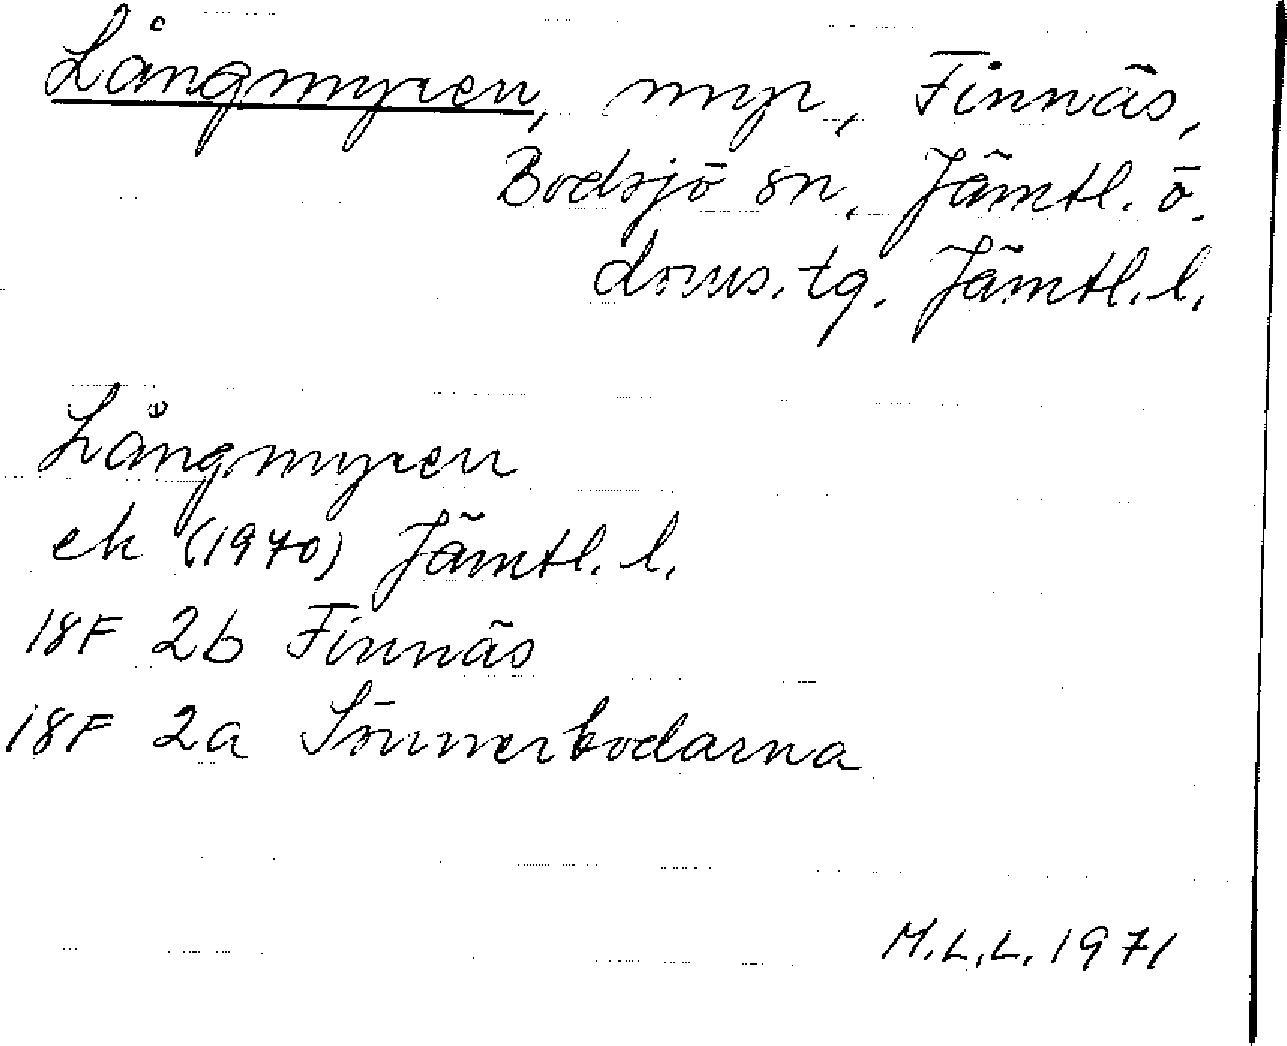 Långmyren, myr, Finnäs,
Bodsjö sn, Jämtl. ö.
doms. tg. Jämtl. l.
Långmyren
ek (1970) Jämtl. l.
18F 2b Finnäs
18F 2a Sönnerbodarna
M.L.L. 1971